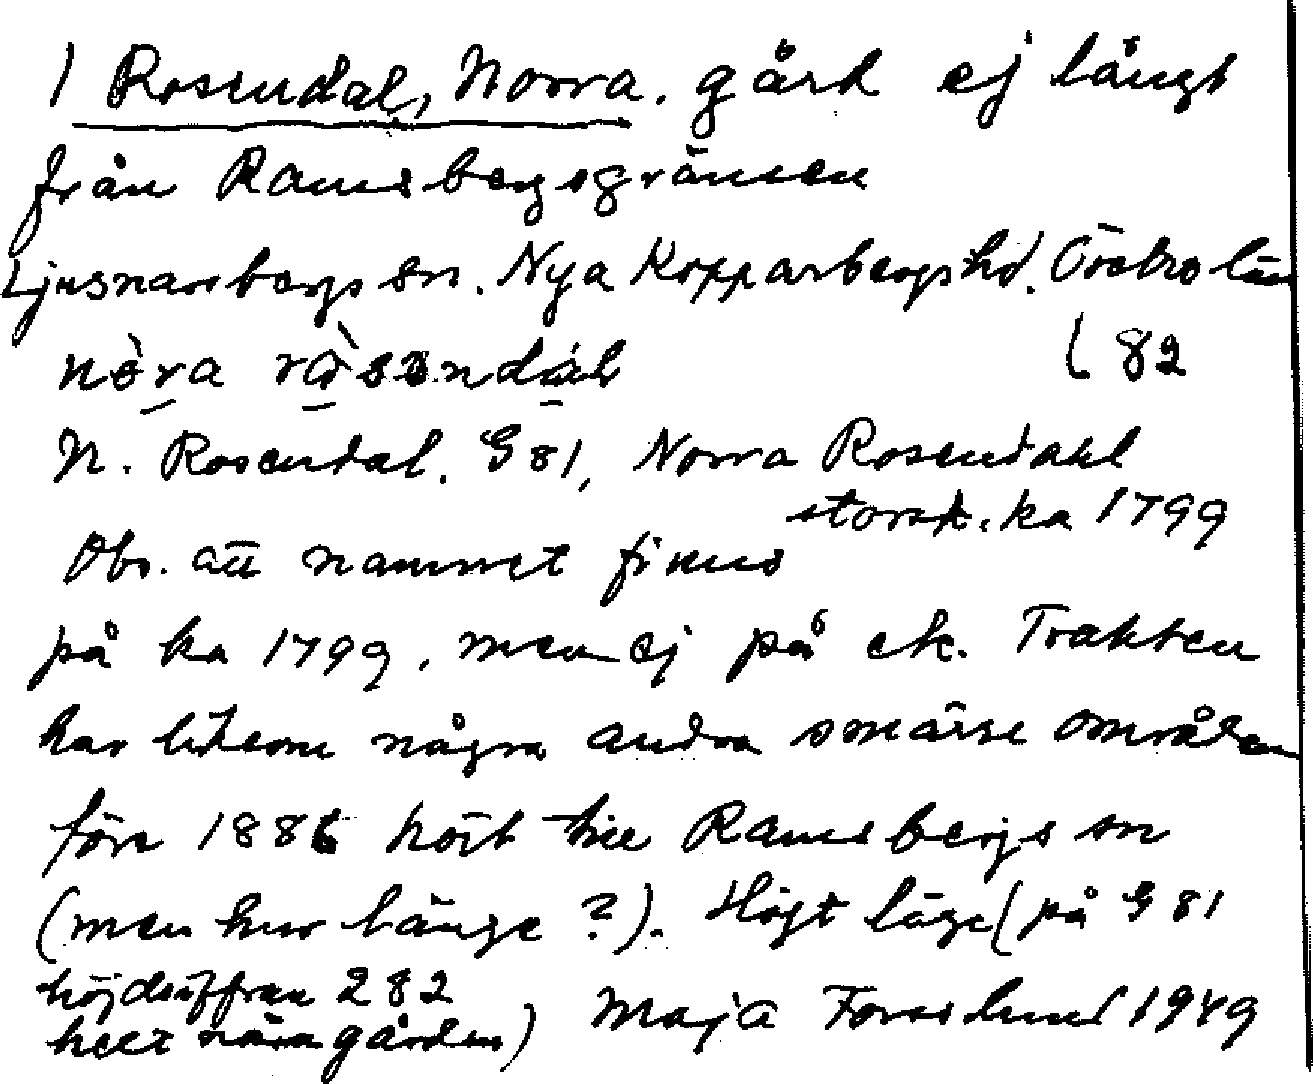 1 Rosendal, Norra. gård ej långt
från Ramsbergsgränsen
Ljusnarsbergs sn. Nya Kopparbergs hd. Örebro län
nòra ròsendál ( 82
N. Rosendal. G 81, Norra Rosendahl
storsk. ka 1799
Obs. att namnet finns
på ka 1799, men ej på ek. Trakten
har liksom några andra smärre områden
före 1886 hört till Ramsbergs sn
(men hur länge ?). Högt läge (på G 81
höjdsiffran 282
helt nära gården) Maja Forsslund 1949